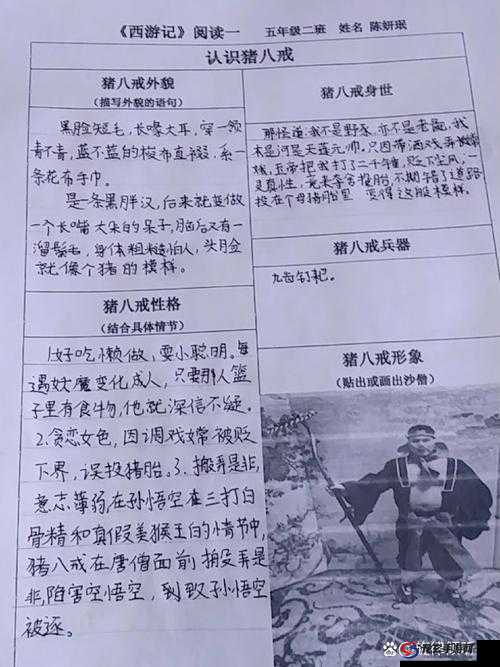 《西游记》阅读一 五年级二班 姓名 陈妍珉
认识猪八戒
猪八戒外貌
(描写外貌的语句)
黑脸短毛,长喙大耳,穿一领
青不青,蓝不蓝的梭布直裰,系一
条花布手巾。
是一条黑胖汉,后来就变做
一个长嘴大耳的呆子,脑后又有一
溜鬃毛,身体粗糙怕人,头脸
就像个猪的模样。
猪八戒身世
那怪道:我不是野豕,亦不是老彘,我
本是河里天蓬元帅,只因带酒戏弄嫦
娥,玉帝把我打了二千锤,贬下尘凡,一
灵真性,竟来夺舍投胎,不期错了道路
投在个母猪胎里 变得这般模样。
猪八戒兵器
九齿钉耙。
猪八戒性格
(结合具体情节)
1.好吃懒做,耍小聪明。每
遇妖魔变化成人,只要那人篮
子里有食物,他就深信不疑。
2.贪恋女色,因调戏嫦被贬
下界,误投猪胎。3.搬弄是非,
意志薄弱,在孙悟空在三打白
骨精和真假美猴王的情节中,
猪八戒在唐僧面前搬弄是
非,陷害空悟空,到致孙悟空
被逐。
猪八戒形象
(贴出或画出沙僧)